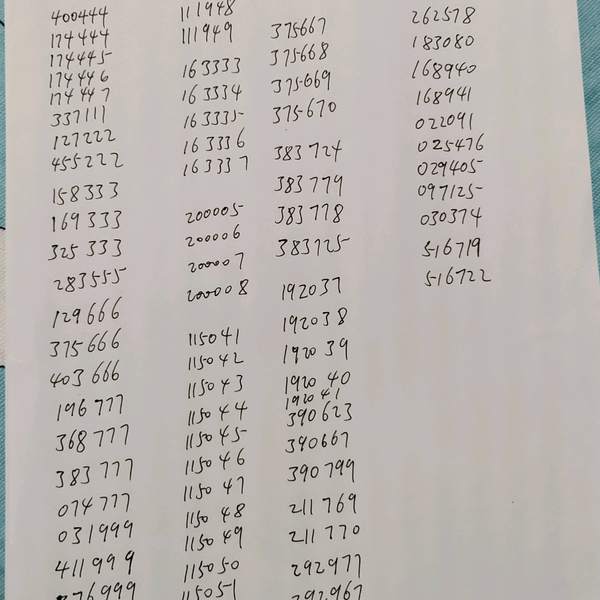 400444
174444
174445
174446
174447
337111
127222
455222
158333
169333
325333
283555
129666
375666
403666
196777
368777
383777
074777
031999
411999
276999
111948
111949
163333
163334
163335
163336
163337
200005
200006
200007
200008
115041
115042
115043
115044
115045
115046
115047
115048
115049
115050
115051
375667
375668
375669
375670
383724
383779
383778
383725
192037
192038
192039
192040
192041
390623
390667
390799
211769
211770
292977
292967
262578
183080
168940
168941
022091
025476
029405
097125
030374
516719
516722